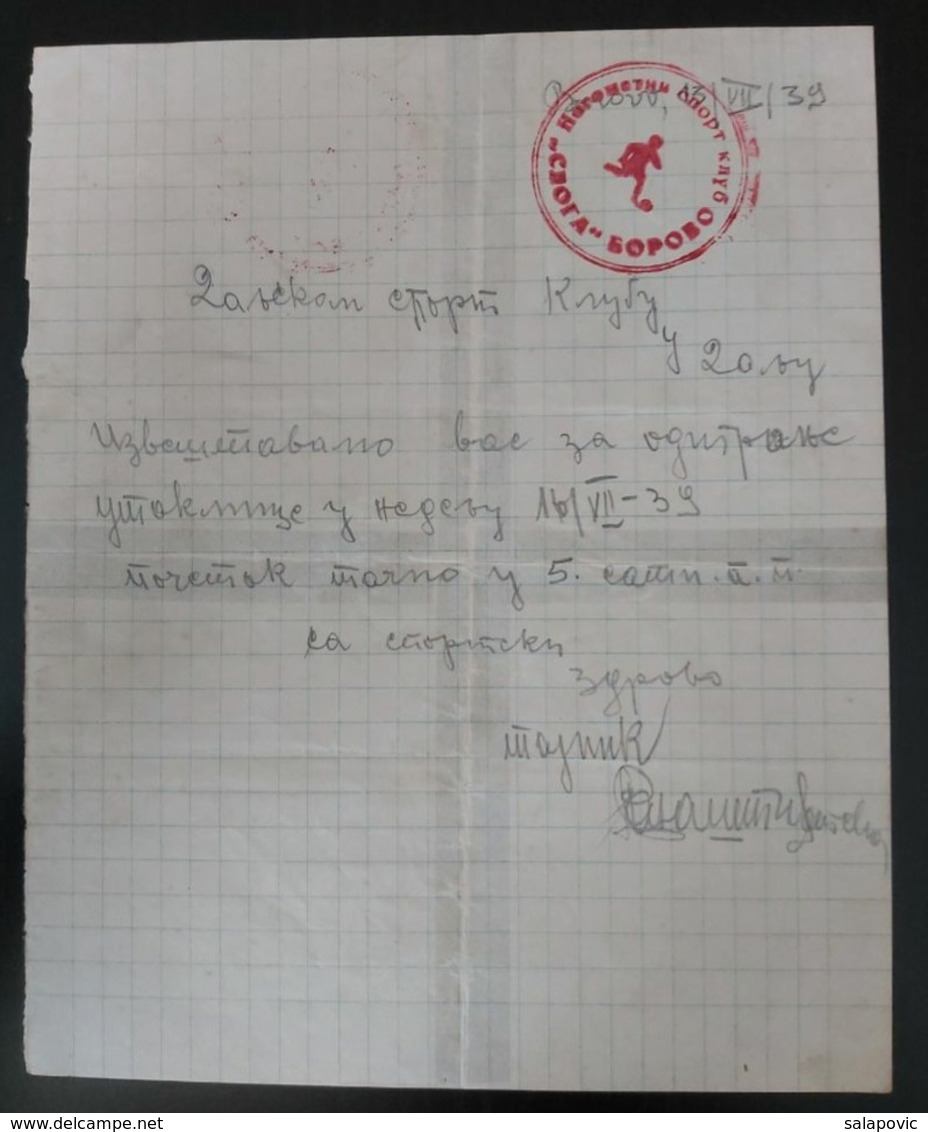 Борово, 13/VII/39
Ногометни спорт клуб
"СЛОГА" БОРОВО
Даљском спорт клубу
у Даљу
Извештавамо вас за одиграње
утакмице у недељу 16/VII-39
почетак тачно у 5. сати п. п.
са спортски
здраво
тајник
delcampe.net
salapovic